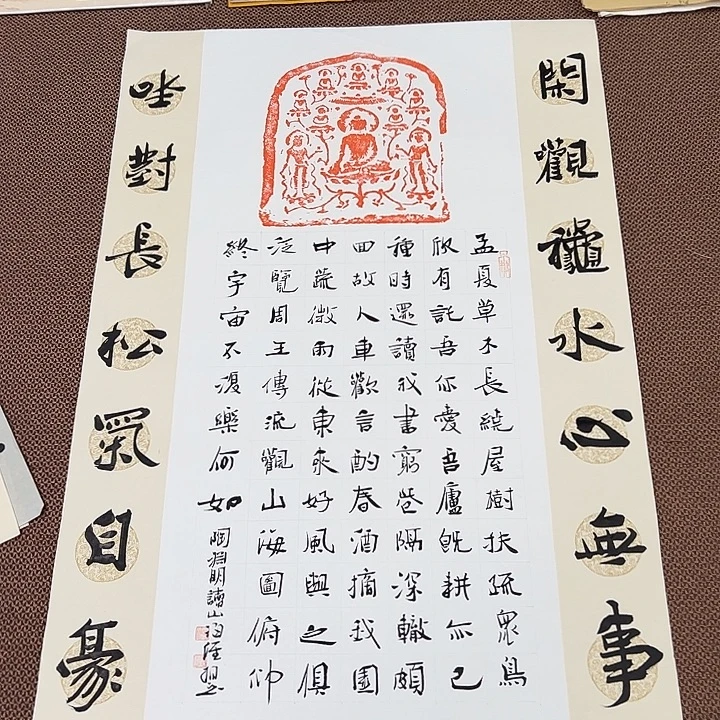 閑觀龝水心無事
孟夏草木長繞屋樹扶疏眾鳥
欣有託吾亦愛吾廬既耕亦已
種時還讀我書窮巷隔深轍頗
回故人車歡言酌春酒摘我園
中蔬微雨從東來好風與之俱
泛覽周王傳流觀山海圖俯仰
終宇宙不復樂何如
陶淵明讀山海經
坐對長松氣自豪